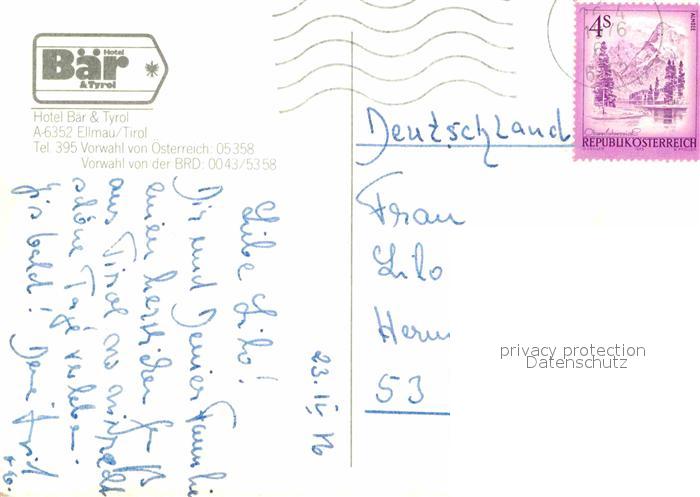 Hotel
Bär
& Tyrol
Hotel Bär & Tyrol
A-6352 Ellmau/Tirol
Tel. 395 Vorwahl von Österreich: 05358
Vorwahl von der BRD: 0043/5358
4S
ALMSEE
REPUBLIK ÖSTERREICH
Deutschland
Frau
Lilo
53
privacy protection
Datenschutz
Liebe Lilo!
Dir und Deiner Familie
einen herzlichen
aus Tirol wo
schöne Tage verleben.
Bis bald! Deine